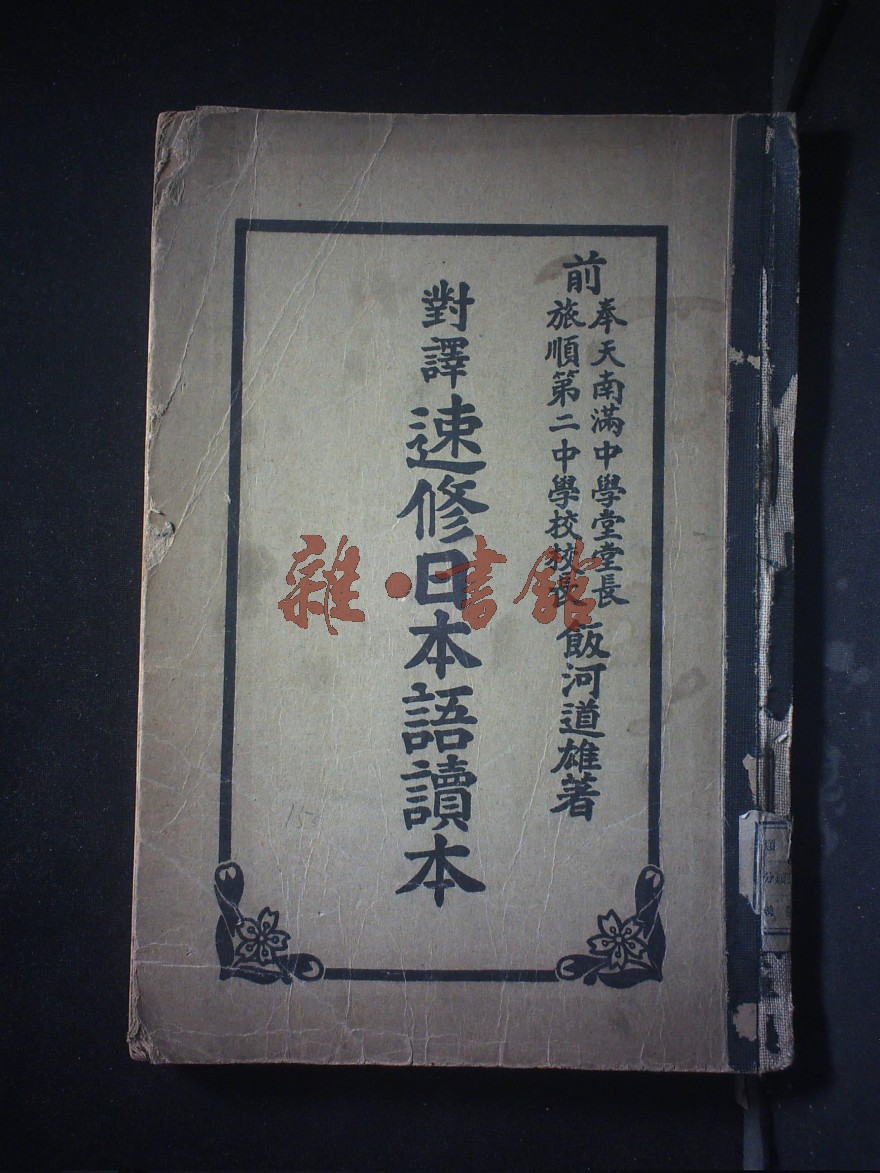 前
奉天南滿中學堂堂長
旅順第二中學校校長
飯河道雄著
對譯
速修日本語讀本
雜·書館
15